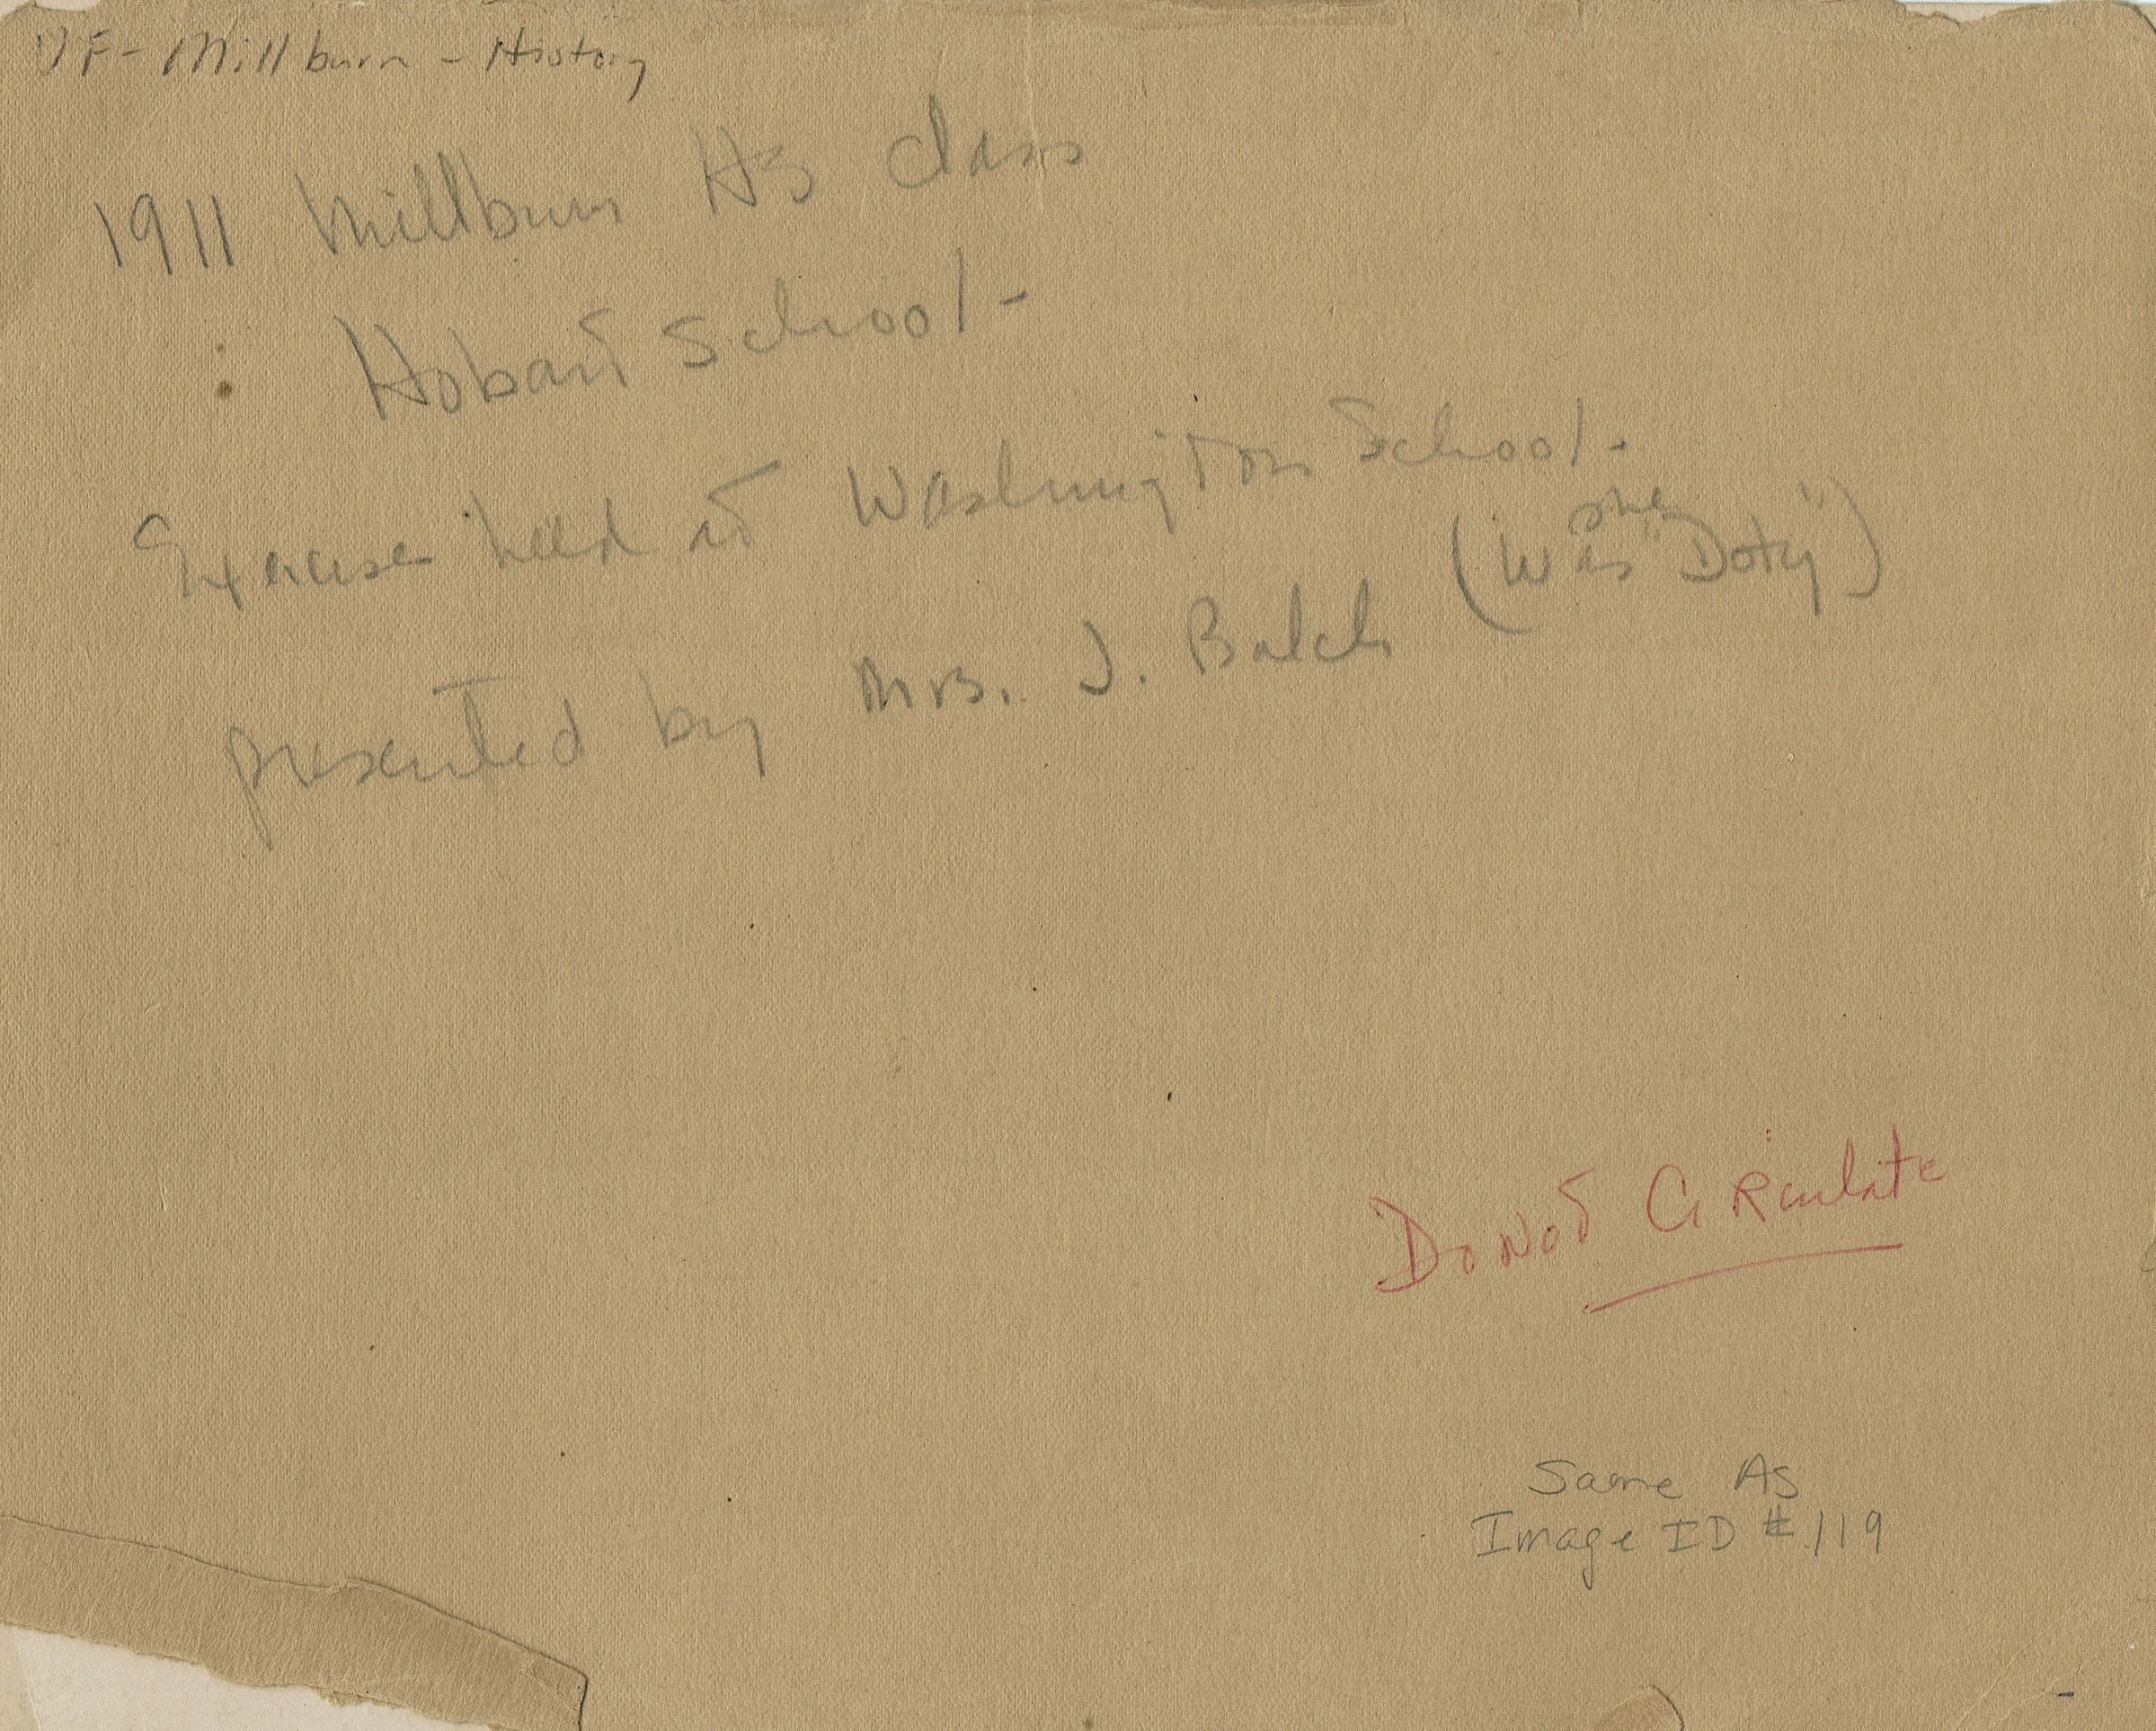 VF - Millburn - History
1911 Millburn HS class
Hobart School -
Exercise held at Washington School -
presented by Mrs. J. Balch (was she "Doty")
Do Not CiRculate
Same As
Image ID # 119